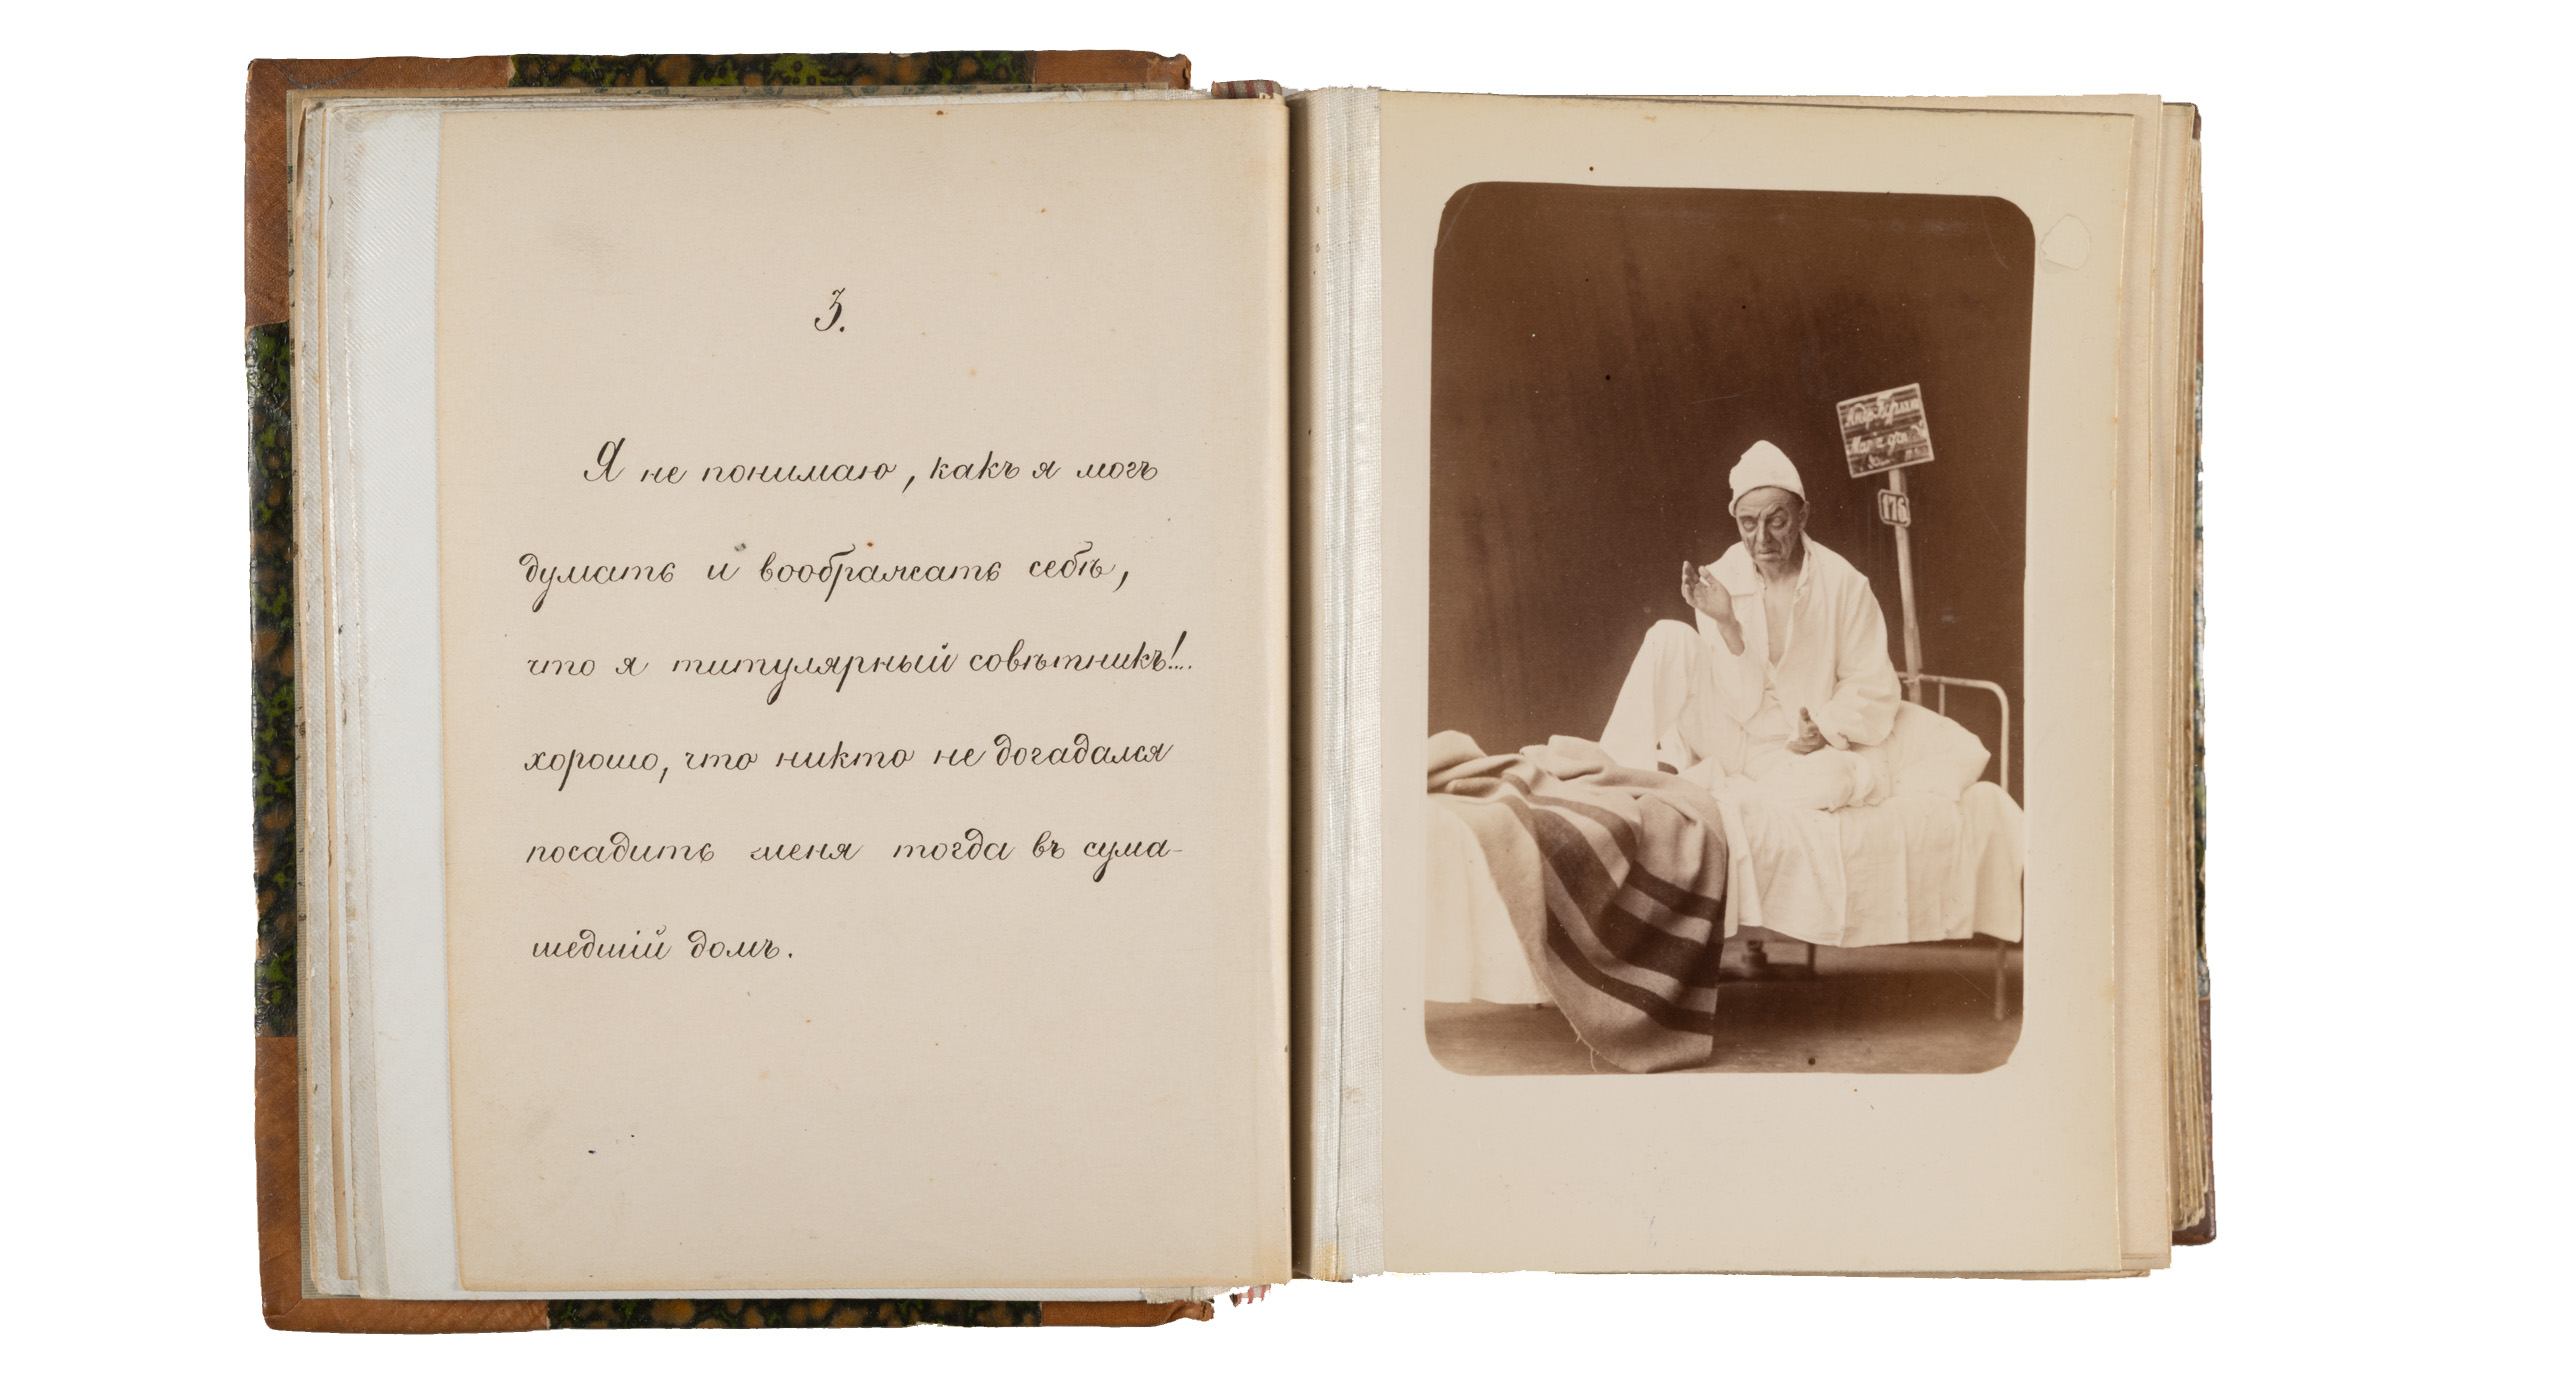 3.
Я не понимаю, какъ я могъ
думать и воображать себѣ,
что я титулярный совѣтникъ!...
хорошо, что никто не догадался
посадить меня тогда въ сума-
шедшій домъ.
176